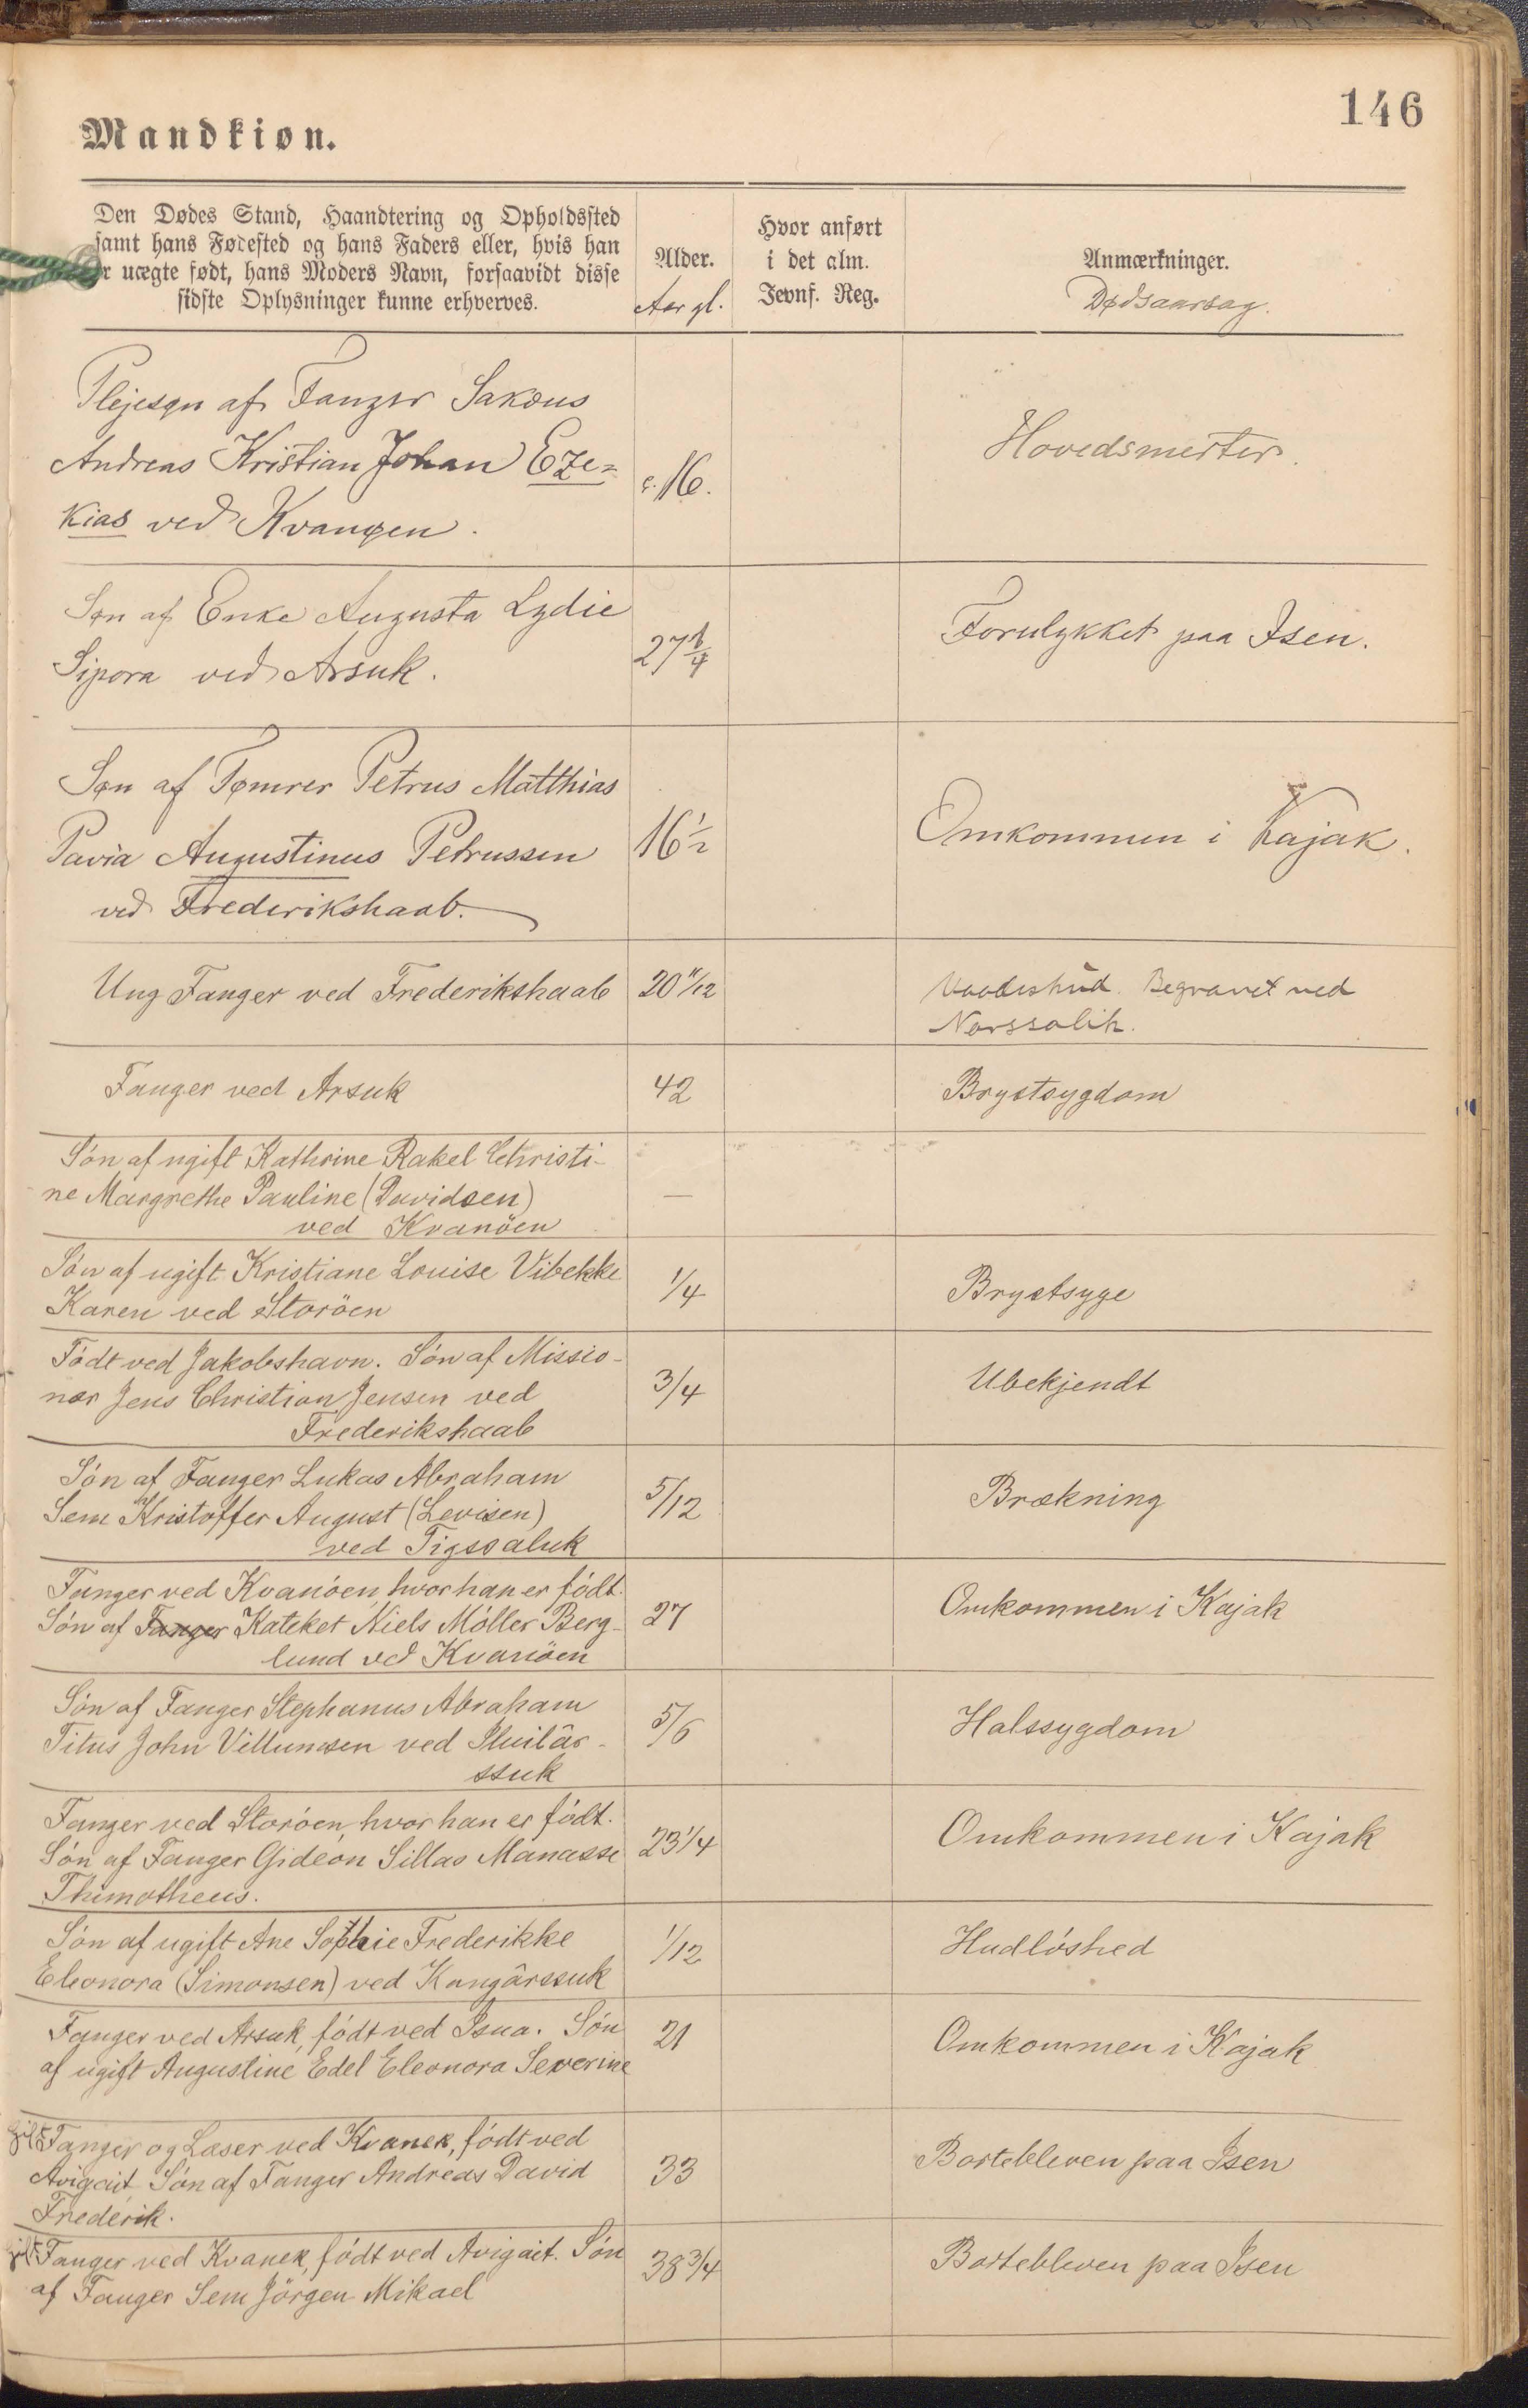 146
Mandkiøn.
Den Dødes Stand, Haandtering og Opholdssted
samt hans Fødested og hans Faders eller, hvis han
r uægte født, hans Moders Navn, forsaavidt disse
sidste Oplysninger kunne erhverves.
Alder.
Aar gl.
Hvor anført
i det alm.
Jevnf. Reg.
Anmærkninger.
Dødsaarsag.
Plejesøn af Fanger Sakæus
Andreas Kristian Johan Eze=
kias ved Kvanøen.
c. 16.
Hovedsmerter.
Søn af Enke Augusta Lydie
Sipora ved Arsuk.
27 1/4
Forulykket paa Isen.
Søn af Tømrer Petrus Matthias
Pavia Augustinus Petrussen
ved Frederikshaab.
16 1/2
Omkommen i Kajak.
Ung Fanger ved Frederikshaab
20 11/12
Vaadeskud. Begravet ved
Narssalik.
Fanger ved Arsuk
42
Brystsygdom
Sön af ugift Kathrine Rakel Christi-
ne Margrethe Pauline (Davidsen)
ved Kvanöen
—
Sön af ugift Kristiane Louise Vibekke
Karen ved Storöen
1/4
Brystsyge
Födt ved Jakobshavn. Sön af Missio-
nær Jens Christian Jensen ved
Frederikshaab
3/4
Ubekjendt
Sön af Fanger Lukas Abraham
Sem Kristoffer August (Levisen)
ved Tigssaluk
5/12
Brækning
Fanger ved Kvanöen, hvor han er födt.
Sön af Fanger Kateket Niels Möller Berg-
lund ved Kvanöen
27
Omkommen i Kajak
Sön af Fanger Stephanus Abraham
Titus John Villumsen ved Iluilâr-
ssuk
5/6
Halssygdom
Fanger ved Storöen, hvor han er födt.
Sön af Fanger Gideon Sillas Manasse
Thimotheus.
23 1/4
Omkommen i Kajak
Sön af ugift Ane Sophie Frederikke
Eleonora (Simonsen) ved Kangârssuk
1/12
Hudlöshed
Fanger ved Arsuk, födt ved Isua. Sön
af ugift Augustine Edel Eleonora Severine
21
Omkommen i Kajak
gift Fanger og Læser ved Kvanek, födt ved
Avigait, Sön af Fanger Andreas David
Frederik.
33
Bortebleven paa Isen
gift Fanger ved Kvanek, födt ved Avigait. Sön
af Fanger Sem Jörgen Mikael
38 3/4
Bortebleven paa Isen